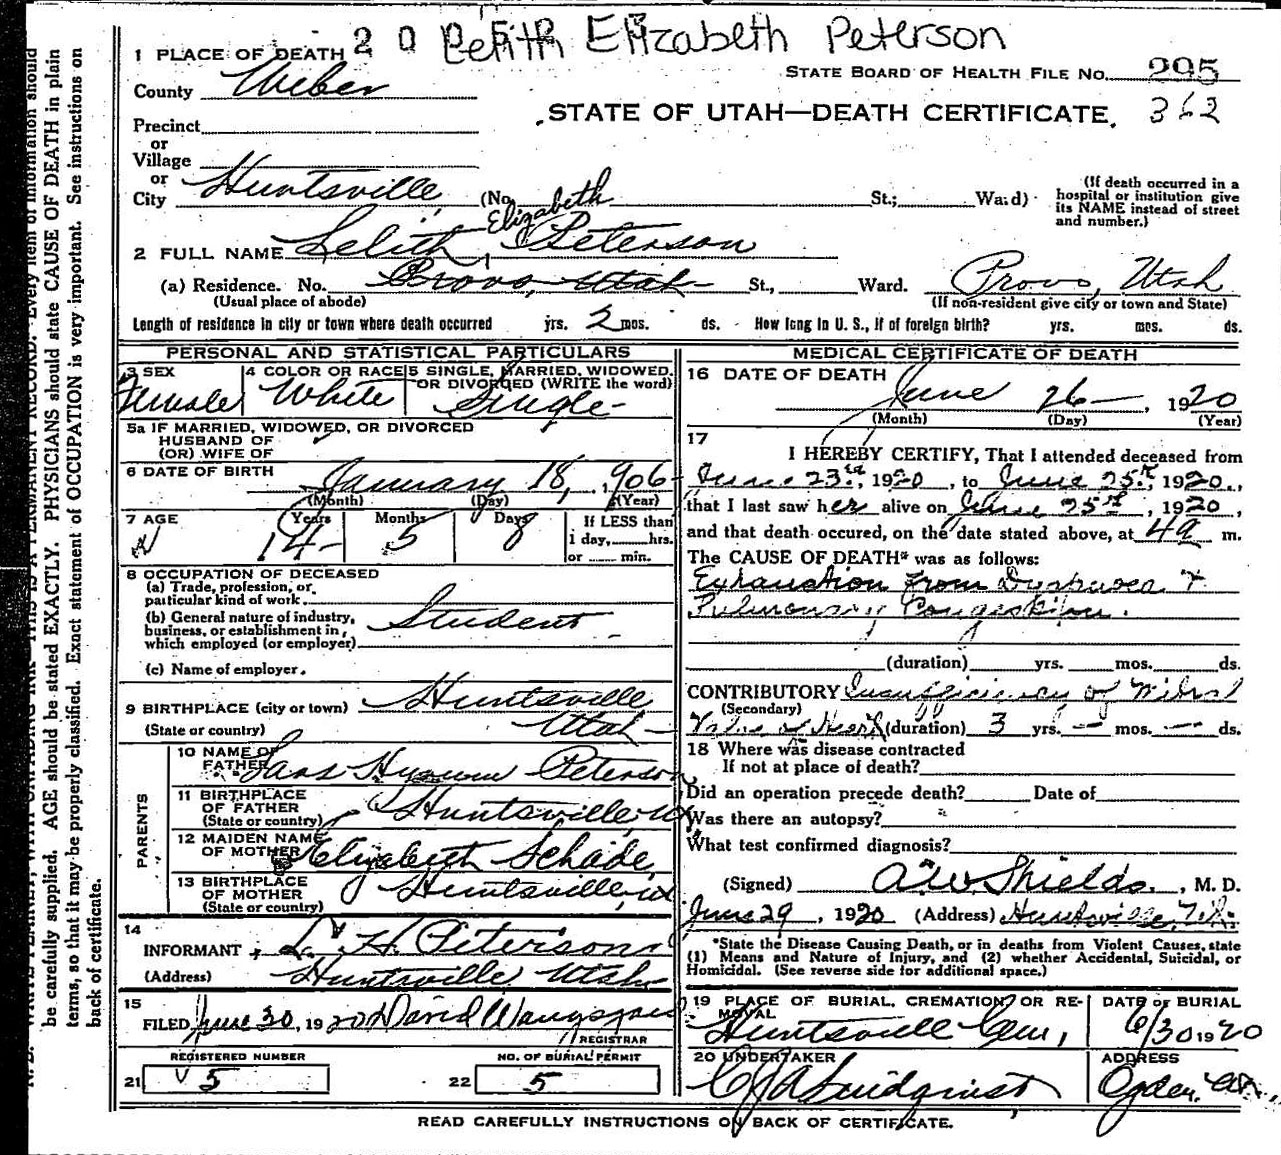 Lelith Elizabeth Peterson
1 PLACE OF DEATH
STATE BOARD OF HEALTH FILE No. 295
County Weber
STATE OF UTAH—DEATH CERTIFICATE. 362
Precinct
or
Village
or
City Huntsville (No. St.; Ward)
(If death occurred in a
hospital or institution give
its NAME instead of street
and number.)
Elizabeth
2 FULL NAME Lelith Peterson
(a) Residence. No. Provo, Utah St., Ward. Provo, Utah
(Usual place of abode) (If non-resident give city or town and State)
Length of residence in city or town where death occurred yrs. 2 mos. ds. How long in U. S., if of foreign birth? yrs. mos. ds.
PERSONAL AND STATISTICAL PARTICULARS
3 SEX Female
4 COLOR OR RACE White
5 SINGLE, MARRIED, WIDOWED,
OR DIVORCED (WRITE the word)
Single
5a IF MARRIED, WIDOWED, OR DIVORCED
HUSBAND OF
(OR) WIFE OF
6 DATE OF BIRTH January 18, 1906
(Month) (Day) (Year)
7 AGE Years Months Days
14 5 8
If LESS than
1 day, hrs.
or min.
8 OCCUPATION OF DECEASED
(a) Trade, profession, or
particular kind of work
(b) General nature of industry,
business, or establishment in
which employed (or employer)
Student
(c) Name of employer.
9 BIRTHPLACE (city or town) Huntsville
(State or country) Utah
PARENTS
10 NAME OF
FATHER Lars Hyrum Peterson
11 BIRTHPLACE
OF FATHER
(State or country) Huntsville, Ut
12 MAIDEN NAME
OF MOTHER Elizabeth Schade
13 BIRTHPLACE
OF MOTHER
(State or country) Huntsville, Ut
14
INFORMANT L. H. Peterson
(Address) Huntsville Utah
15
FILED June 30, 1920 David Wangsgaard
REGISTRAR
REGISTERED NUMBER
21 5
NO. OF BURIAL PERMIT
22 5
MEDICAL CERTIFICATE OF DEATH
16 DATE OF DEATH
June 26, 1920
(Month) (Day) (Year)
17
I HEREBY CERTIFY, That I attended deceased from
June 23rd, 1920, to June 25th, 1920,
that I last saw her alive on June 25th, 1920,
and that death occured, on the date stated above, at 4 a m.
The CAUSE OF DEATH* was as follows:
Exhaustion from Dyspnoea &
Pulmonary Congestion.
(duration) yrs. mos. ds.
CONTRIBUTORY Insufficiency of Mitral
(Secondary)
Valve of Heart (duration) 3 yrs. — mos. — ds.
18 Where was disease contracted
If not at place of death?
Did an operation precede death? Date of
Was there an autopsy?
What test confirmed diagnosis?
(Signed) A W Shields, M. D.
June 29, 1920 (Address) Huntsville, Ut.
*State the Disease Causing Death, or in deaths from Violent Causes, state
(1) Means and Nature of Injury, and (2) whether Accidental, Suicidal, or
Homicidal. (See reverse side for additional space.)
19 PLACE OF BURIAL, CREMATION, OR RE-
MOVAL
Huntsville Cem,
DATE of BURIAL
6/30 1920
20 UNDERTAKER
ADDRESS
Ogden,
READ CAREFULLY INSTRUCTIONS ON BACK OF CERTIFICATE.
be carefully supplied. AGE should be stated EXACTLY. PHYSICIANS should state CAUSE OF DEATH in plain
terms, so that it may be properly classified. Exact statement of OCCUPATION is very important. See instructions on
back of certificate.